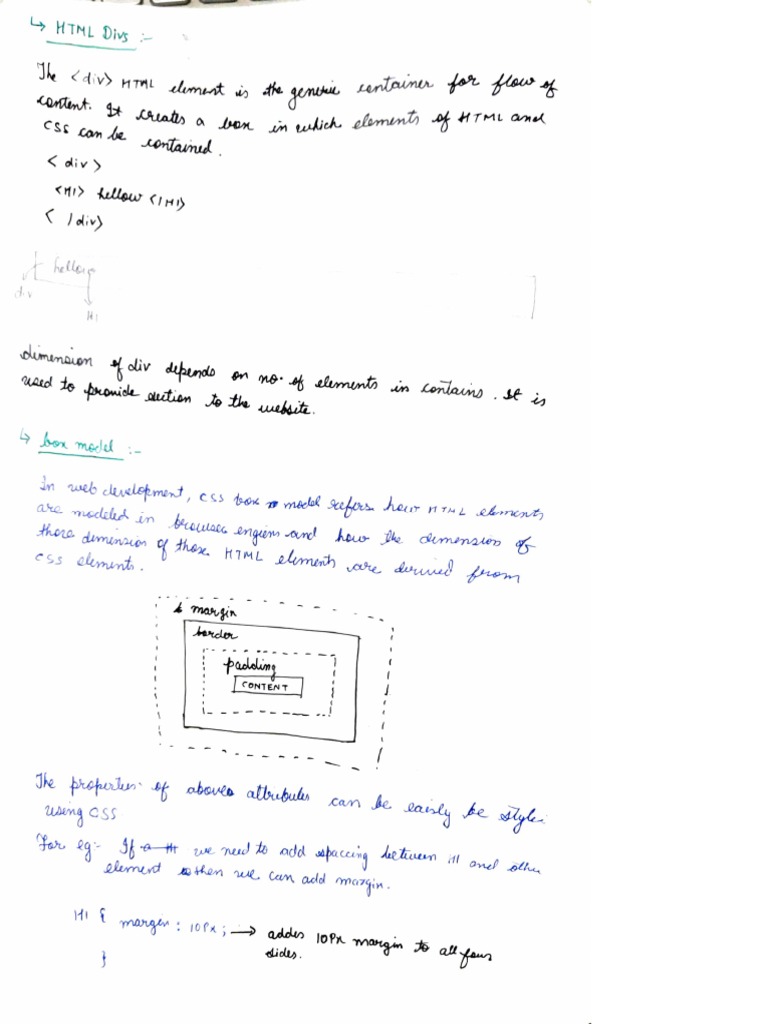 ↳ HTML Divs :-
The <div> HTML element is the generic container for flow of
content. It creates a box in which elements of HTML and
CSS can be contained.
< div >
<H1> hellow </H1>
< /div>
hellow
div
H1
dimension of div depends on no. of elements in contains. It is
used to provide section to the website.
↳ box model :-
In web development, CSS box model refers how HTML elements
are modeled in browser engiens and how the dimension of
those dimension of those HTML elements are derived from
CSS elements.
margin
border
padding
CONTENT
The properties of above attributes can be easily be style
using CSS
For eg:- If we need to add spaccing between H1 and other
element then we can add margin.
H1 { margin : 10Px ; → addes 10Px margin to all four
sides.
}